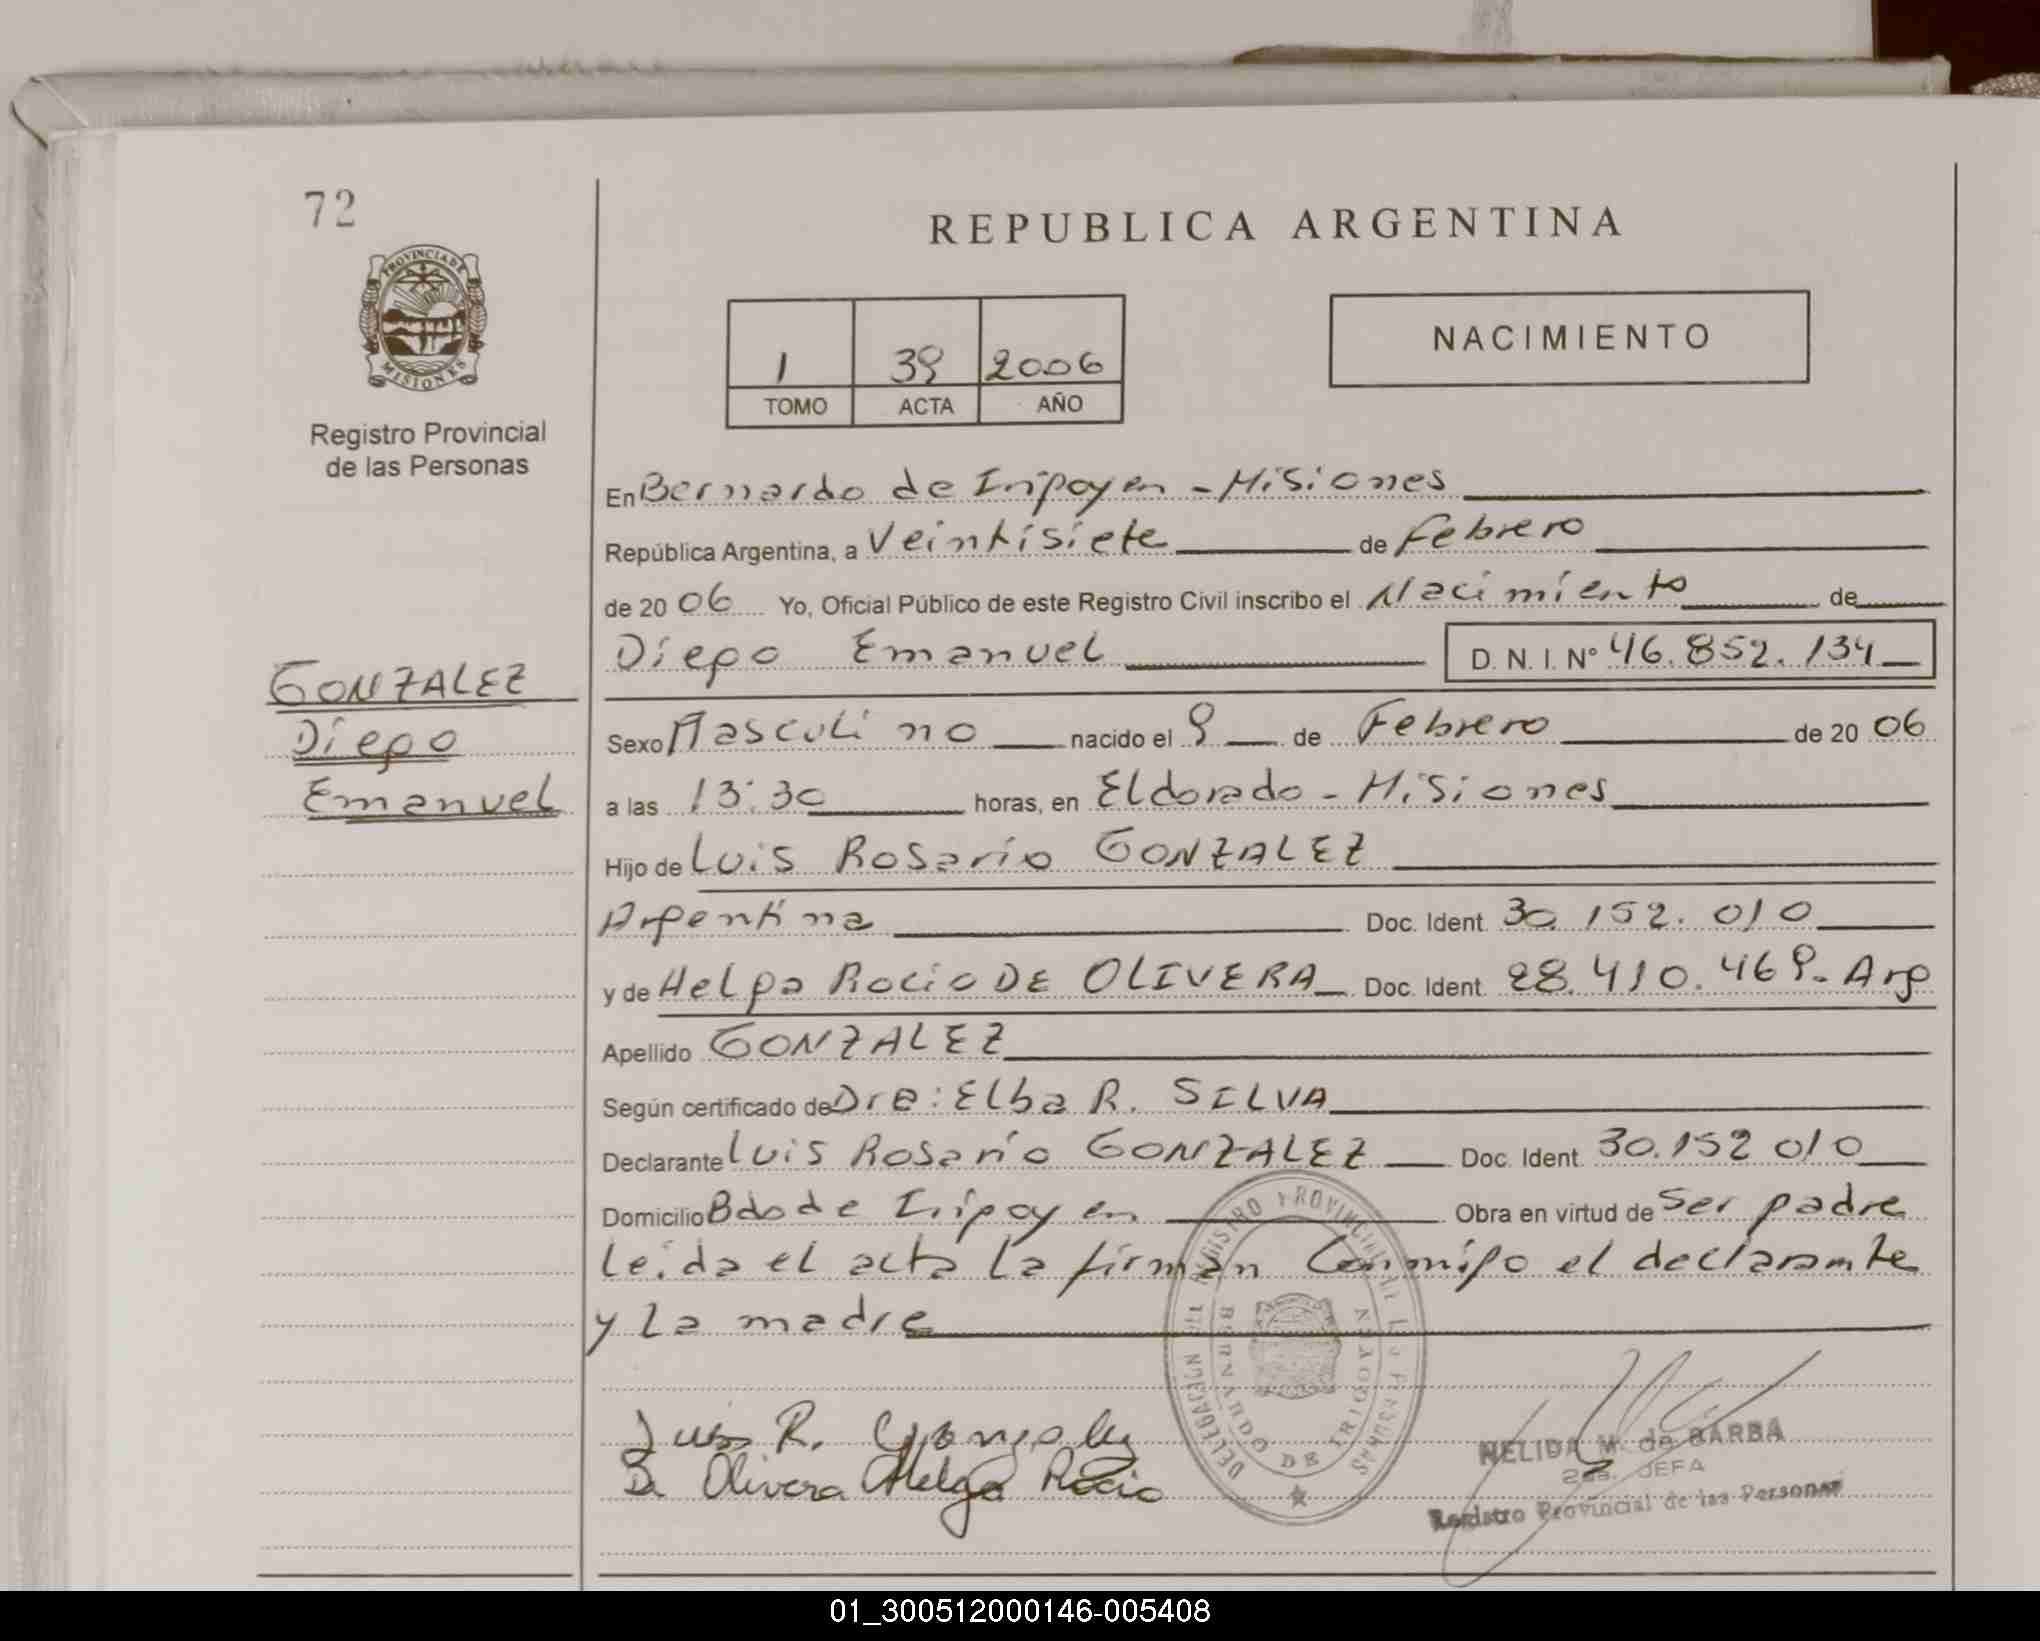 72
REPUBLICA ARGENTINA
PROVINCIA DE
MISIONES
Registro Provincial
de las Personas
1 39 2006
TOMO ACTA AÑO
NACIMIENTO
En Bernardo de Irigoyen - Misiones
República Argentina, a Veintisiete de Febrero
de 20 06 Yo, Oficial Público de este Registro Civil inscribo el Nacimiento de
Diego Emanuel D. N. I. Nº 46.852.134
GONZALEZ
Diego
Emanuel
Sexo Masculino nacido el 9 de Febrero de 20 06
a las 13:30 horas, en Eldorado - Misiones
Hijo de Luis Rosario GONZALEZ
Argentina Doc. Ident. 30.152.010
y de Helga Rocio DE OLIVERA Doc. Ident. 28.410.469- Arg
Apellido GONZALEZ
Según certificado de Dra: Elba R. SILVA
Declarante Luis Rosario GONZALEZ Doc. Ident. 30.152 010
Domicilio Bdo de Irigoyen Obra en virtud de Ser padre
Leida el acta la firman Conmigo el declarante
y la madre
REGISTRO PROVINCIAL DE LAS PERSONAS
DELEGACION
BERNARDO DE IRIGOYEN
Luis R. Gonzalez
De Olivera Helga Rocio
NELIDA M. de BARBA
2da. JEFA
Registro Provincial de las Personas
01_300512000146-005408